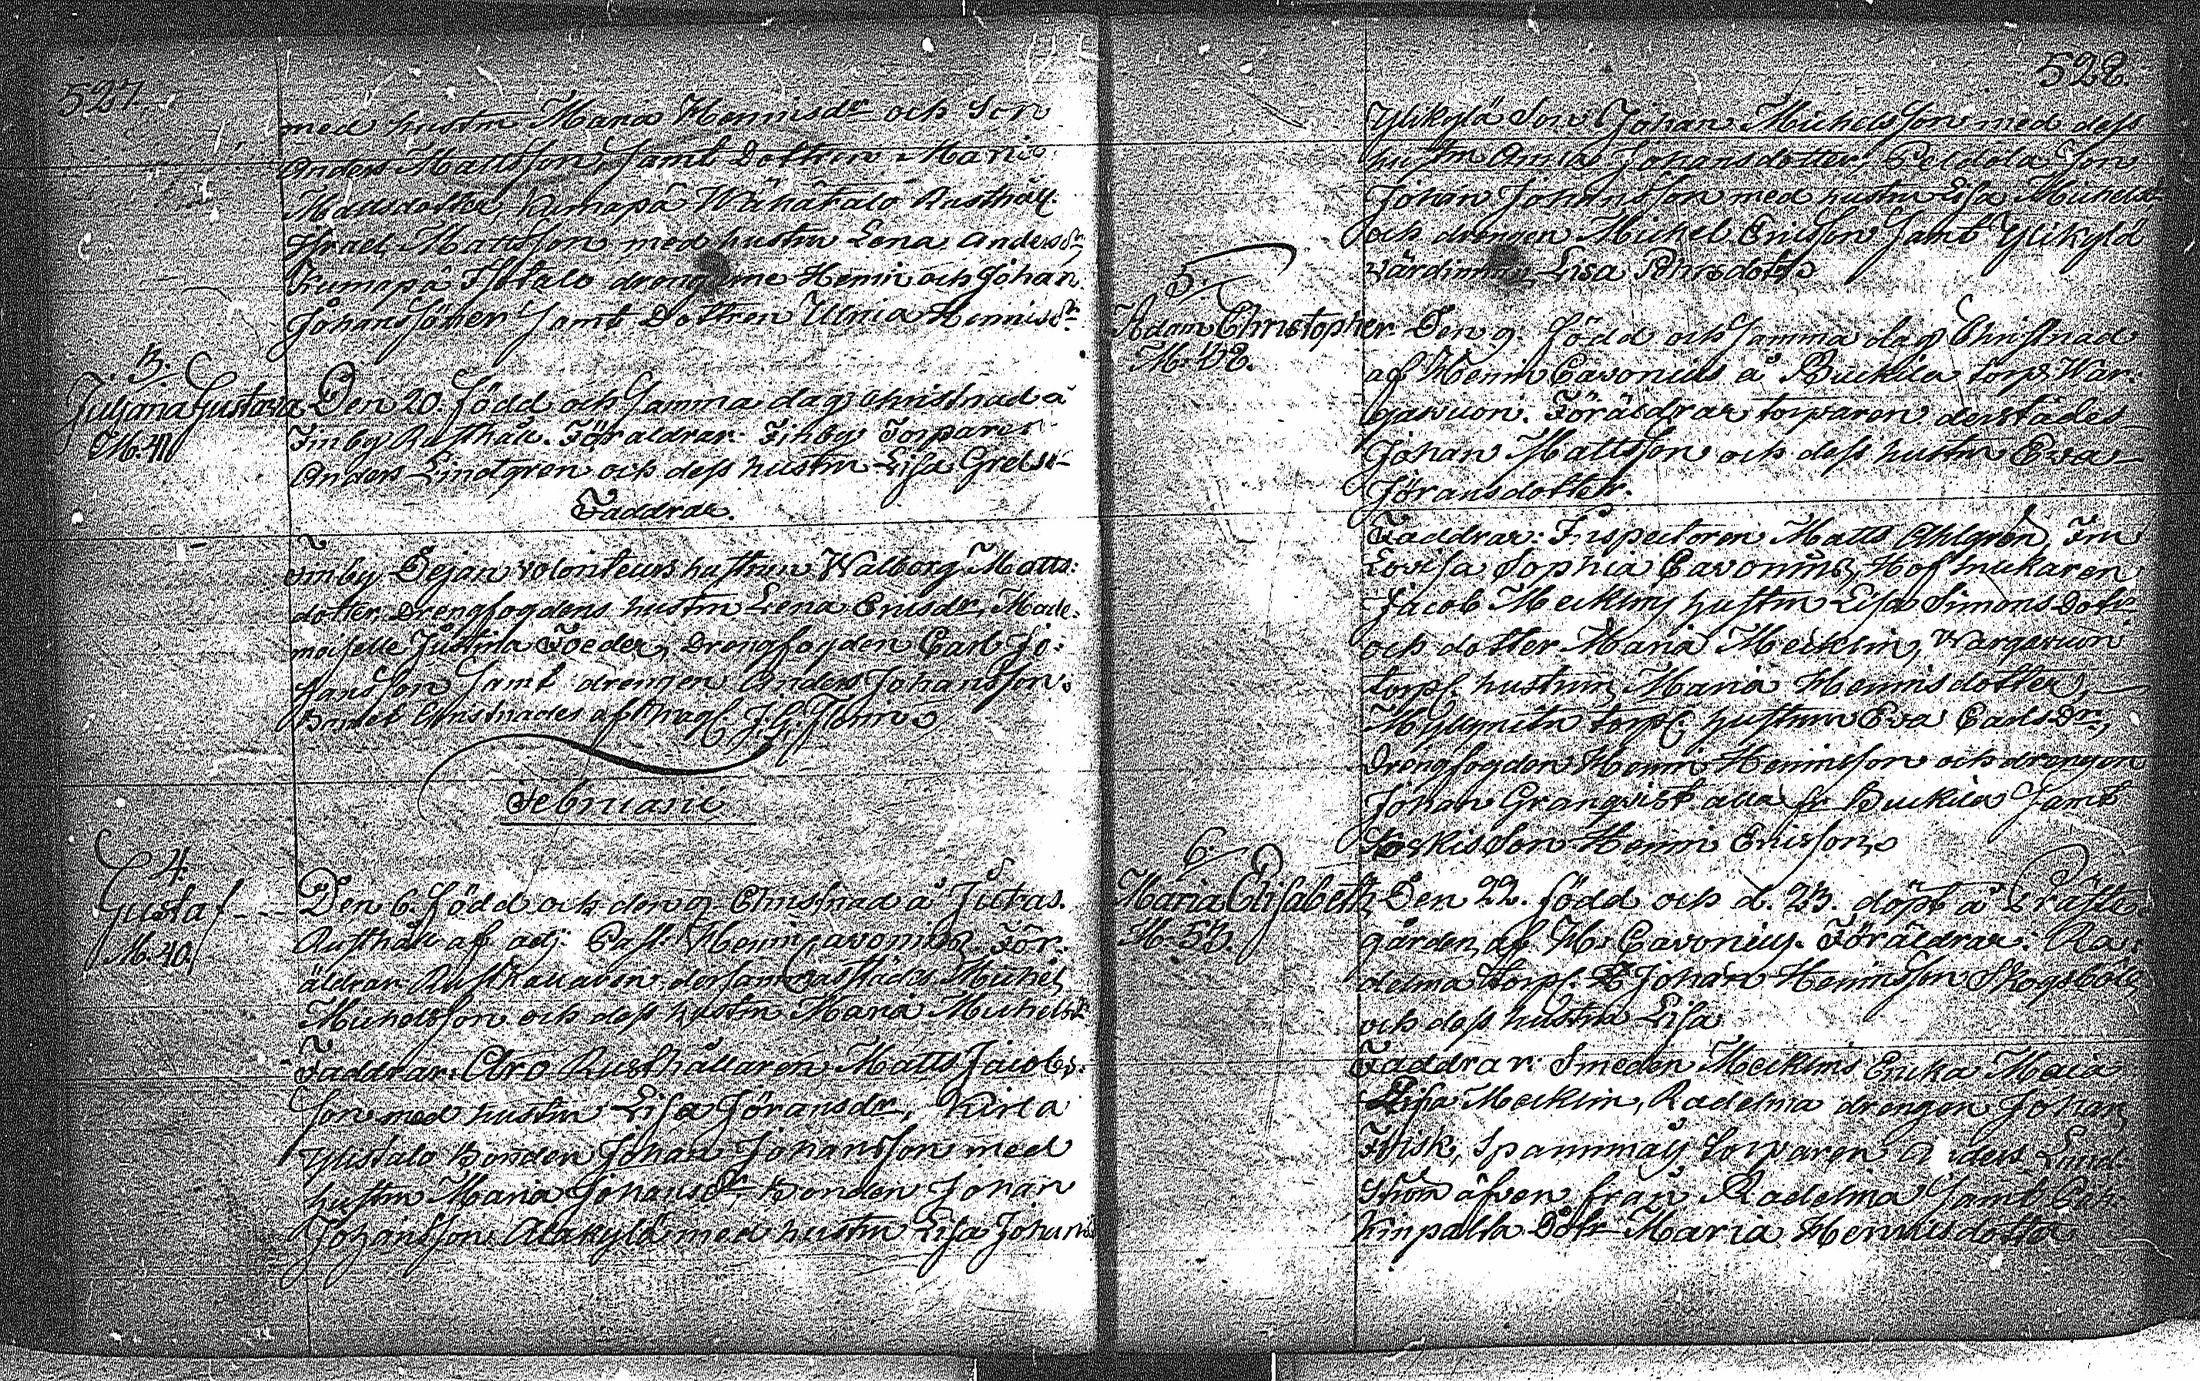 527.
med hustru Maria Henrisdr och Son
Anders Mattsson, samt Dottren Maria
Mattsdotter, Kumopä Wähätalo Rusthåll.
Israel Mattsson med hustru Lena Andersdr
Kumopä Isotalo drengarne Henric och Johan
Johanssöner samt Dottren Ulrica Henrisdr
3.
Juliana Gustava Den 20. född och samma dag christnad å
M. 41
Inby Rusthåll. Föräldrar: Inby Torparen
Anders Lindgren och dess hustru Lisa Greta
Faddrar.
Inby Dejan volonteurs hustrun Walborg Matts:
dotter, Drengfogdens hustru Lena Ericsdr, Made:
moiselle Justina Foeder, Drengfogden Carl Jo:
hansson samt drengen Anders Johansson.
Barnet Christnades af
Februarii
4.
Gustaf Den 6. född och den 9. Christnad å Jutas.
M. 40.
Rusthåll af adj: Past: Henric Cavonius. För:
äldrar Rusthållaren dersammastädes Michel
Michelsson och dess hustru Maria Michelsdr
Faddrar: Aro Rusthållaren Matts Jacobs:
son med hustru Lisa Jöransdr, Kirla
Ylistalo Bonden Johan Johansson med
hustru Maria Johansdr Bonden Johan
Johansson Alakylä med hustru Lisa Johans
528.
Ylikylä Son Johan Michelsson med dess
hustru Anna Johansdotter, Peldola Son
Johan Johansson med hustru Lisa Michelsdr
och drengen Michel Ericsson samt Ylikylä
värdinna Lisa
5.
Adam Christopher. Den 9. född och samma dag Christnad
M. 38.
af Henric Cavonius å Buckila torp War:
gavuori. Föräldrar torparen derstädes
Johan Mattsson och dess hustru Eva
Jöransdotter.
Faddrar: Inspectoren Matts Ahlgren,
Lovisa Sophia Cavonius, Hofslukaren
Jacob Mecklins hustru Lisa Simons Dotr
och dotter Maria Mecklin, Wargavuori
torps. hustrun Maria Henrisdotter,
torps. hustrun Eva Carls Dr,
Drengfogden Henric Henricsson och drengen
Johan Granqvist alla fr Buckila samt
Koskis Son Henric Ericsson
6.
Maria Elisabeth, Den 22. född och d. 23. döpt å Prästen
M. 33.
gården af H: Cavonius. Föräldrar: Ra:
delma torps. Johan Henricsson Skogsböle
och dess hustru Lisa
Faddrar: Smeden Mecklins Enka Maria
Lisa Mecklin, Radelma drengen Johan
Frisk, Torparen Anders Lund:
ström äfven från Radelma samt
Dotr Maria Henrisdotter